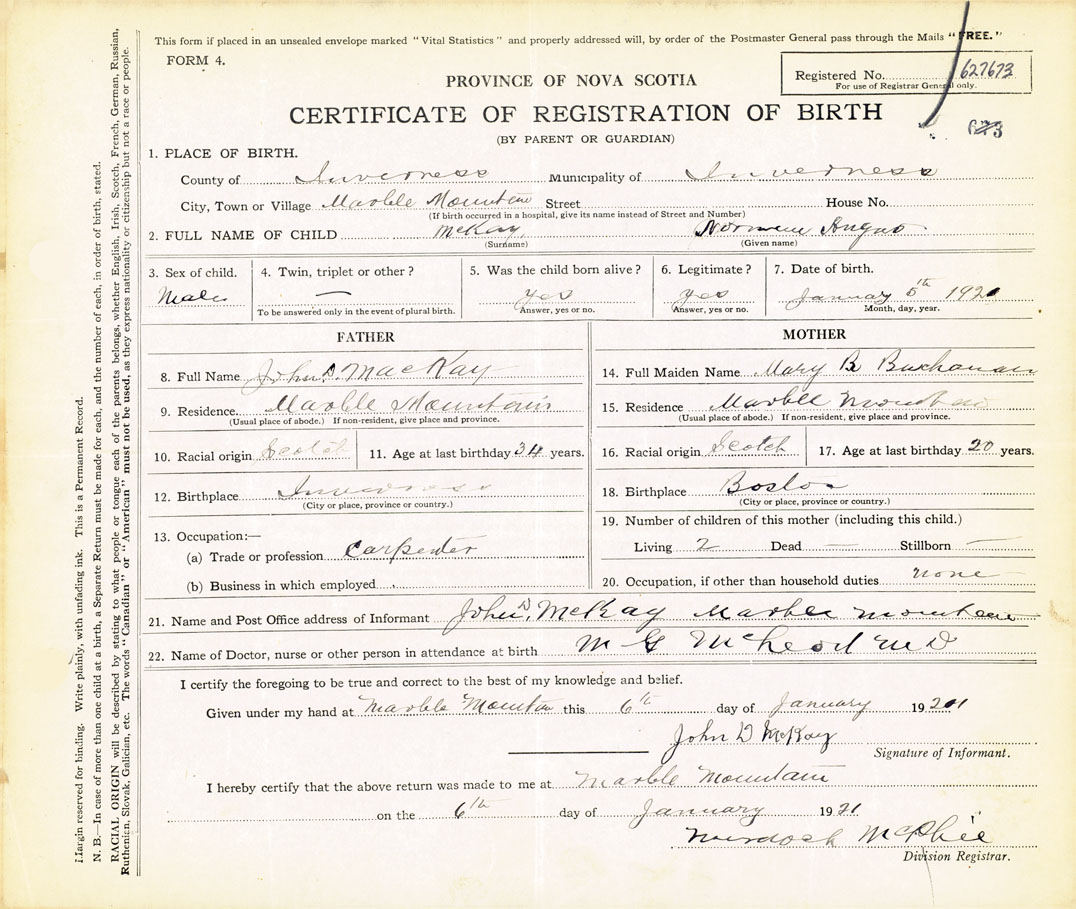 This form if placed in an unsealed envelope marked "Vital Statistics" and properly addressed will, by order of the Postmaster General pass through the Mails "FREE."
FORM 4.
Registered No. 627673
For use of Registrar General only.
PROVINCE OF NOVA SCOTIA
CERTIFICATE OF REGISTRATION OF BIRTH
673
(BY PARENT OR GUARDIAN)
1. PLACE OF BIRTH.
County of Inverness Municipality of Inverness
City, Town or Village Marble Mountain Street House No.
(If birth occurred in a hospital, give its name instead of Street and Number)
2. FULL NAME OF CHILD McKay Angus
(Surname) (Given name)
3. Sex of child. 4. Twin, triplet or other? 5. Was the child born alive? 6. Legitimate? 7. Date of birth.
Male — yes yes January 5th
To be answered only in the event of plural birth. Answer, yes or no. Answer, yes or no. Month, day, year.
FATHER
8. Full Name John D. MacKay
9. Residence. Marble Mountain
(Usual place of abode.) If non-resident, give place and province.
10. Racial origin Scotch 11. Age at last birthday 34 years.
12. Birthplace Inverness
(City or place, province or country.)
13. Occupation:—
(a) Trade or profession Carpenter
(b) Business in which employed
MOTHER
14. Full Maiden Name Mary B Buchanan
15. Residence Marble Mountain
(Usual place of abode.) If non-resident, give place and province.
16. Racial origin Scotch 17. Age at last birthday 20 years.
18. Birthplace Boston
(City or place, province or country.)
19. Number of children of this mother (including this child.)
Living 2 Dead — Stillborn —
20. Occupation, if other than household duties none
21. Name and Post Office address of Informant John D. McKay Marble Mountain
22. Name of Doctor, nurse or other person in attendance at birth M G McLeod MD
I certify the foregoing to be true and correct to the best of my knowledge and belief.
Given under my hand at Marble Mountain this 6th day of January 19
John D McKay
Signature of Informant.
I hereby certify that the above return was made to me at Marble Mountain
on the 6th day of January 1921
Murdoch McPhie
Division Registrar.
Margin reserved for binding. Write plainly, with unfading ink. This is a Permanent Record.
N. B.—In case of more than one child at a birth, a Separate Return must be made for each, and the number of each, in order of birth, stated.
RACIAL ORIGIN will be described by stating to what people or tongue each of the parents belongs, whether English, Irish, Scotch, French, German, Russian,
Ruthenian, Slovak, Galician, etc. The words "Canadian" or "American" must not be used, as they express nationality or citizenship but not a race or people.